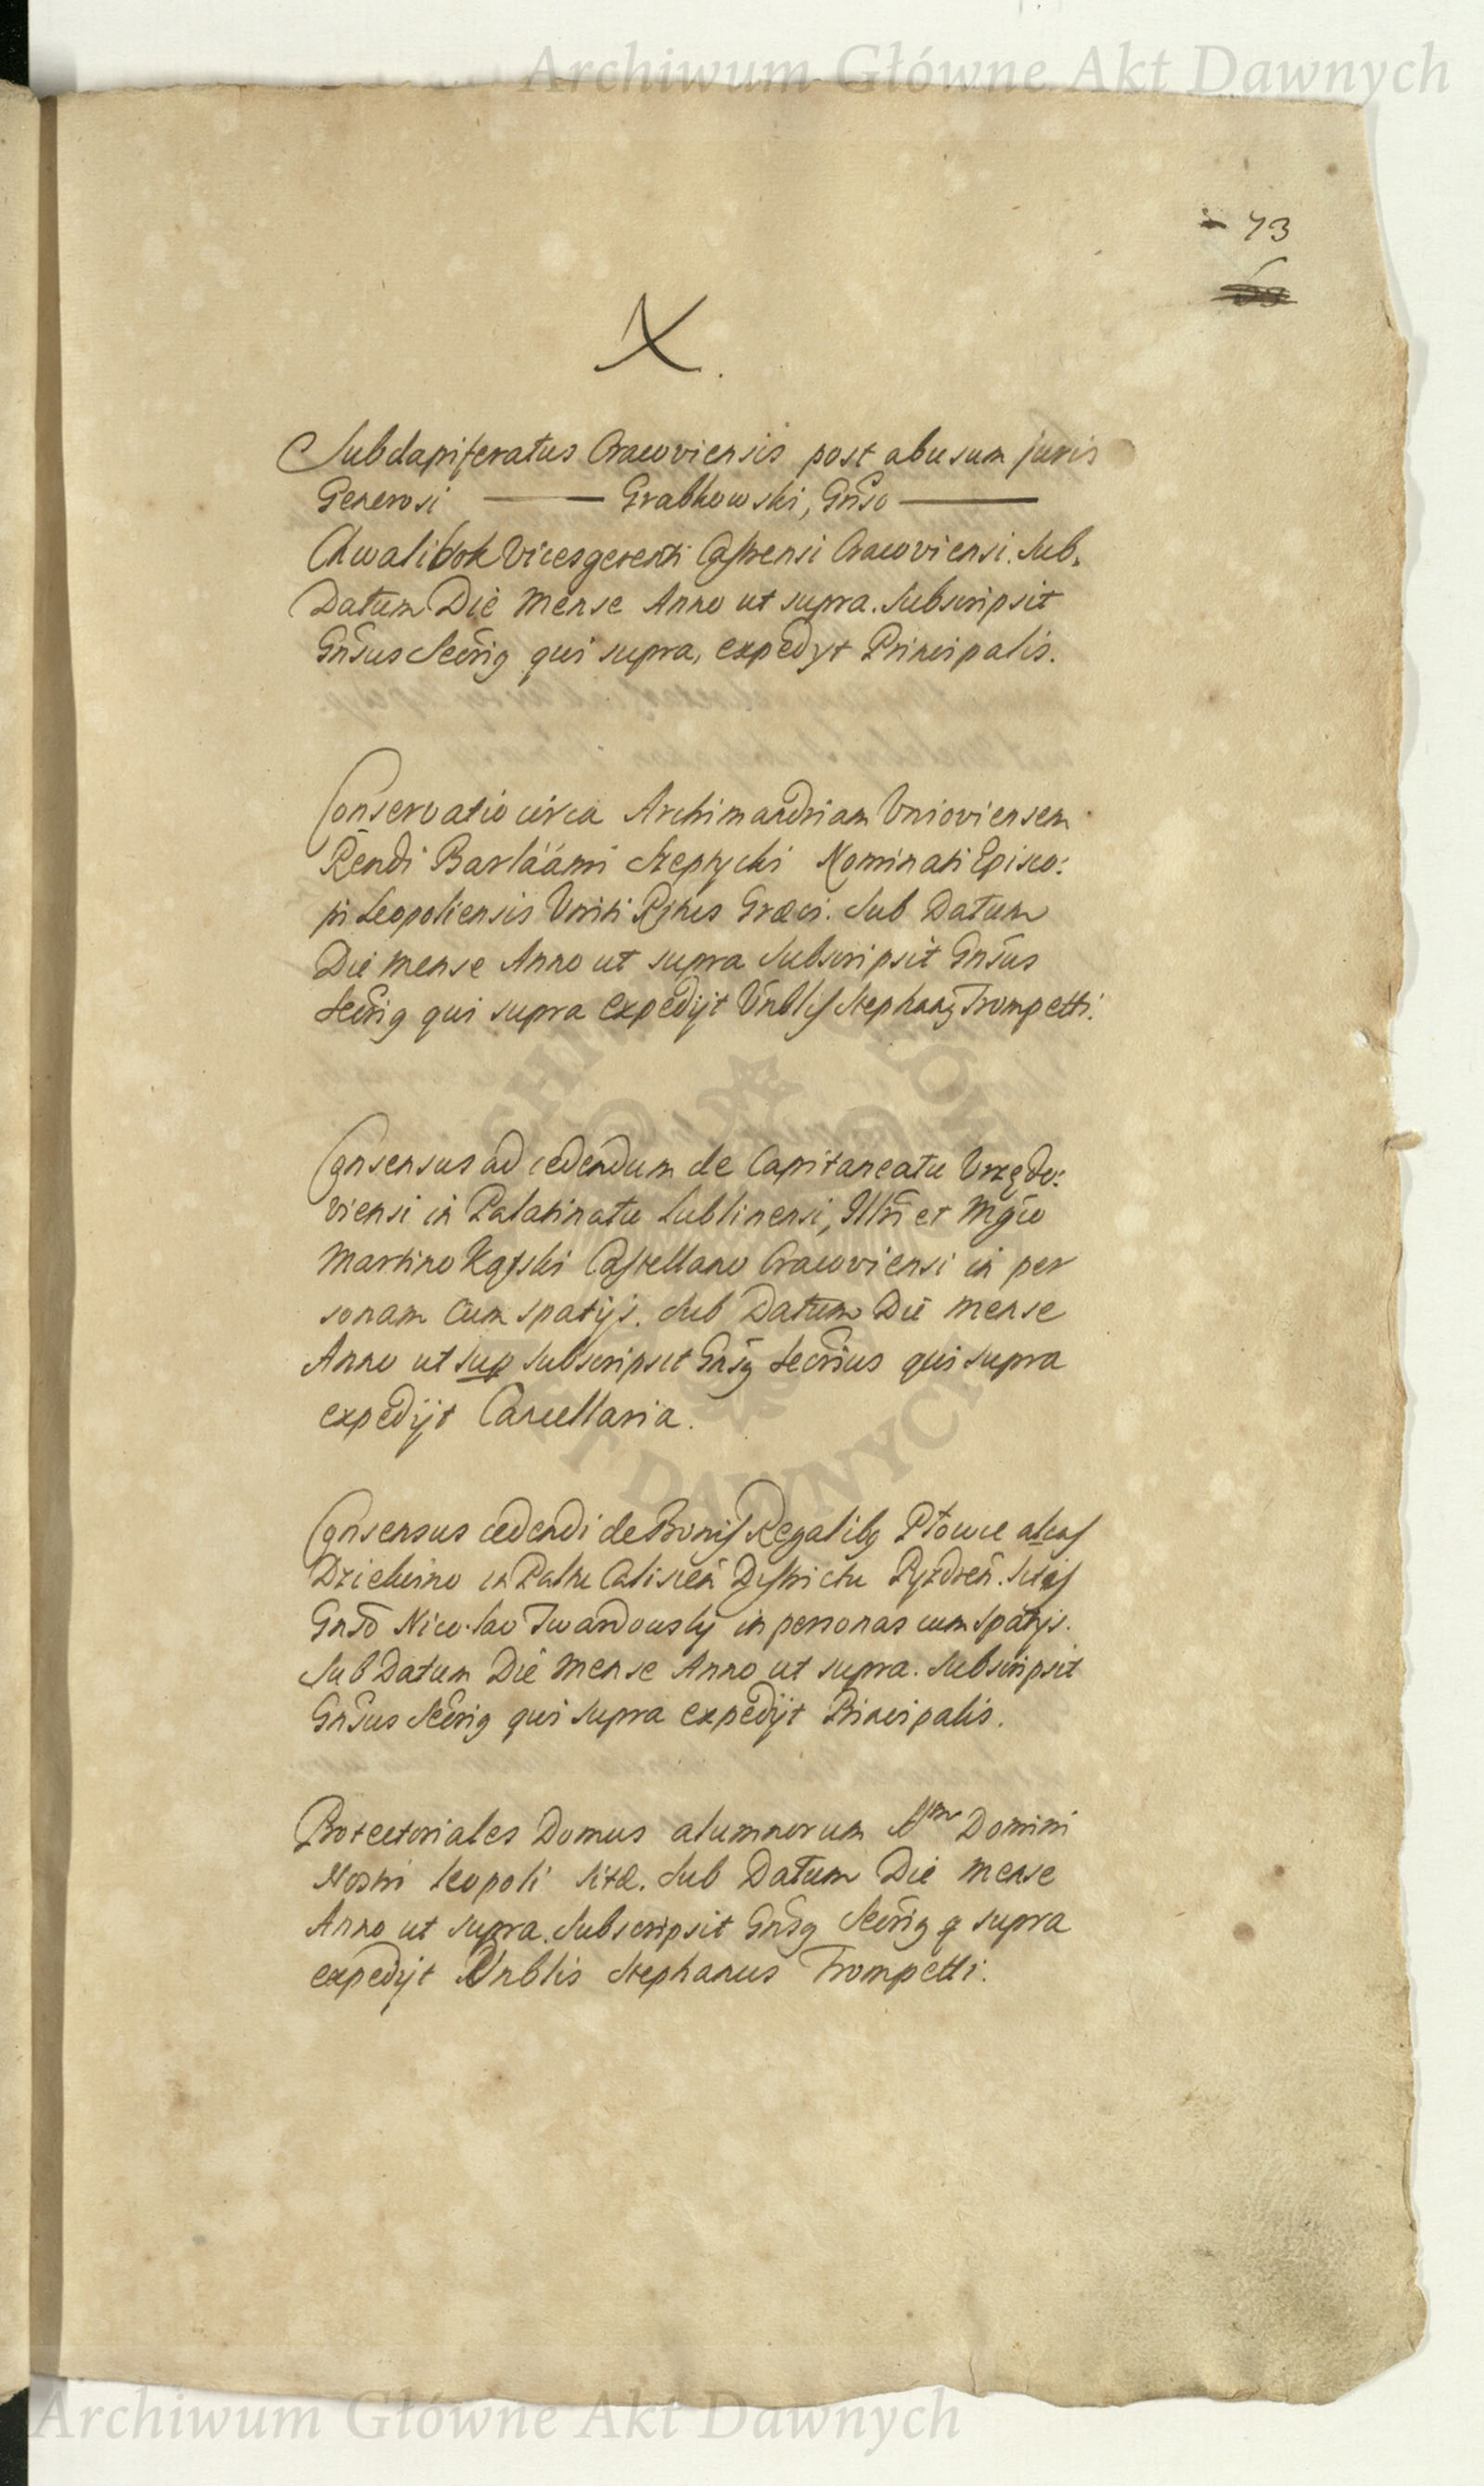 Archiwum Główne Akt Dawnych
73
X.
Subdapiferatus Cracoviensis post abusum juris
Generosi ——— Grabkowski, Gnso ———
Chwalibok Vicesgerenti Castrensi Cracoviensi. Sub.
Datum Die Mense Anno ut supra. Subscripsit
Gnsus Secrig qui supra, expedyt Principalis.
Conservatio circa Archimandriam Unioviensem
Rendi Barláámi Szeptycki Nominati Episco:
pi Leopoliensis Uniti Ritus Græci. Sub Datum
Die mense Anno ut supra Subscripsit Gnsus
Secrig qui supra Expedijt Vnblis Stephang Trompetti.
Consensus ad cedendum de Capitaneatu Urzędo:
viensi in Palatinatu Lublinensi, Illri et Mgco
Martino Kątski Castellano Cracoviensi in per
sonam Cum spatijs. Sub Datum Die mense
Anno ut sup Subscripsit Gnsg Secrius qui supra
expedijt Cancellaria.
Consensus cedendi de Bonis Regalibg Płowce alias
Dziekcino in Paltu Calisien Districtu Pyzdren. sitis
Gnso Nicolao Twardowsky in personas cum Spatijs.
Sub Datum Die Mense Anno ut supra. Subscripsit
Gnsus Secrig qui supra Expedijt Principalis.
Protectoriales Domus alumnorum Domini
Nostri Leopoli sitæ. Sub Datum Die Mense
Anno ut supra. Subscripsit Gnsg Secrig q supra
expedijt Vnblis Stephanus Trompetti.
ARCHIWUM GŁÓWNE AKT DAWNYCH
Archiwum Główne Akt Dawnych